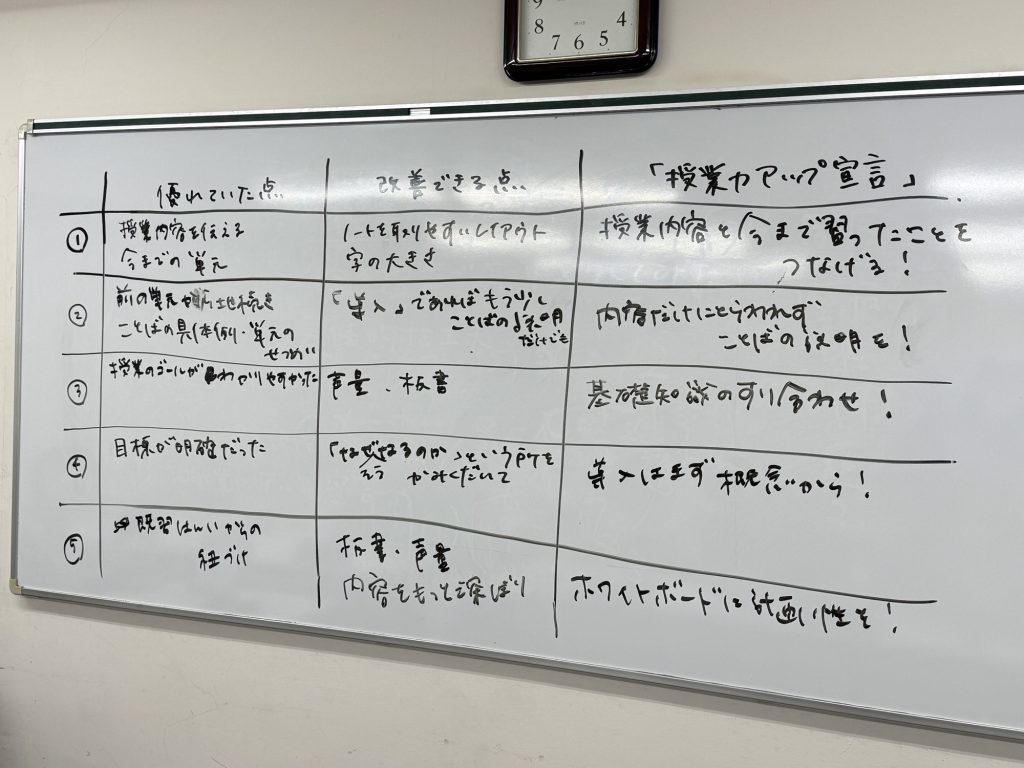 9
8
7 6 5
4
優れていた点
改善できる点
「授業力アップ宣言」
①
授業内容を伝える
今までの単元
ノートを取りやすいレイアウト
字の大きさ
授業内容と今まで習ってたことを
つなげる!
②
前の単元 地続き
ことばの具体例・単元の
せつめい
「導入」であればもう少し
ことばの説明
だけでも
内容だけにとらわれず
ことばの説明を!
③
授業のゴールがわかりやすかった
声量、板書
基礎知識のすり合わせ!
④
目標が明確だった
「なぜなるのか」という所を
そう かみくだいて
導入はまず概念から!
⑤
既習はんいからの
紐づけ
板書・声量
内容をもっと深ぼり
ホワイトボードに計画性を!